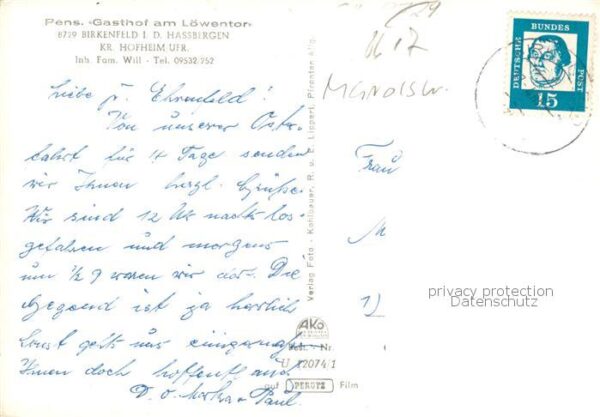 Pens. -Gasthof am Löwentor
8729 BIRKENFELD I. D. HASSBERGEN
KR. HOFHEIM UFR.
Inh. Fam. Will - Tel. 09532/752
Liebe Ehrenfeld!
Von unserer Oster-
fahrt für 14 Tage senden
wir Ihnen herzl. Grüße.
Wir sind 12 Uhr nachts los-
gefahren und morgens
um ½ 9 waren wir dort. Die
Gegend ist ja herrlich
Sonst geht's uns
Ihnen doch hoffentl. auch
Paul.
Verlag Foto - Kohlbauer, R. u. E. Lippert, Pfronten Allg.
AKO
U 12074/1
auf PERUTZ Film
DEUTSCHE BUNDES POST
15
Frau
M
privacy protection
Datenschutz